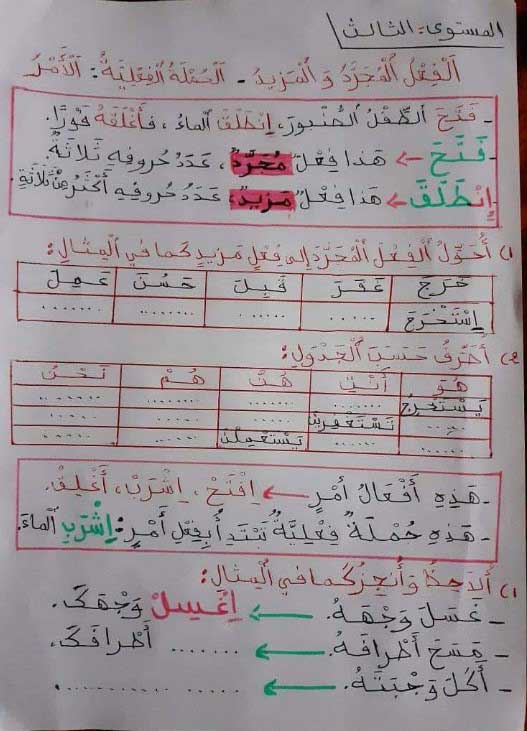 المستوى: الثالث
اَلْفِعْلُ الْمُجَرَّدُ وَ الْمَزِيدُ - اَلْجُمْلَةُ الْفِعْلِيَّةُ: اَلْأَمْرُ
- فَتَحَ الطِّفْلُ الصُّنْبُورَ، اِنْطَلَقَ الْماءُ، فأَغْلَقَهُ فَوْرًا.
- فَتَحَ ← هَذا فِعْلٌ مُجَرَّدٌ، عَدَدُ حُروفِهِ ثَلاثَةٌ.
اِنْطَلَقَ ← هَذا فِعْلٌ مَزيدٌ، عَدَدُ حُروفِهِ أَكْثَرُ مِنْ ثَلاثَةٍ.
1) أُحَوِّلُ الْفِعْلَ الْمُجَرَّدَ إلى فِعْلٍ مَزيدٍ كَما في الْمِثالِ:
خَرَجَ غَفَرَ قَبِلَ حَسُنَ عَمِلَ
اِسْتَخْرَجَ ...... ...... ........ .......
2) أُصَرِّفُ حَسَبَ الْجَدْوَلِ:
هُوَ أَنْتِ هُنَّ هُمْ نَحْنُ
يَسْتَخْرِجُ ........ ........ ........ ........
...... تَسْتَغْفِرِينَ ........ ........ ......
....... ....... يَسْتَعْمِلْنَ ........ ......
- هَذِهِ أَفْعَالُ أَمْرٍ ← اِفْتَحْ، اِشْرَبْ، أَغْلِقْ.
- هَذِهِ جُمْلَةٌ فِعْلِيَّةٌ تَبْتَدِأُ بِفِعْلِ أَمْرٍ: اِشْرَبِ الْماءَ.
1) أُلاحِظُ وَأُنْجِزُ كَما في الْمِثالِ:
- غَسَلَ وَجْهَهُ. ← اِغْسِلْ وَجْهَكَ.
- مَسَحَ أَطْرافَهُ. ← ....... أَطْرافَكَ.
- أَكَلَ وَجْبَتَهُ. ← ....... ............